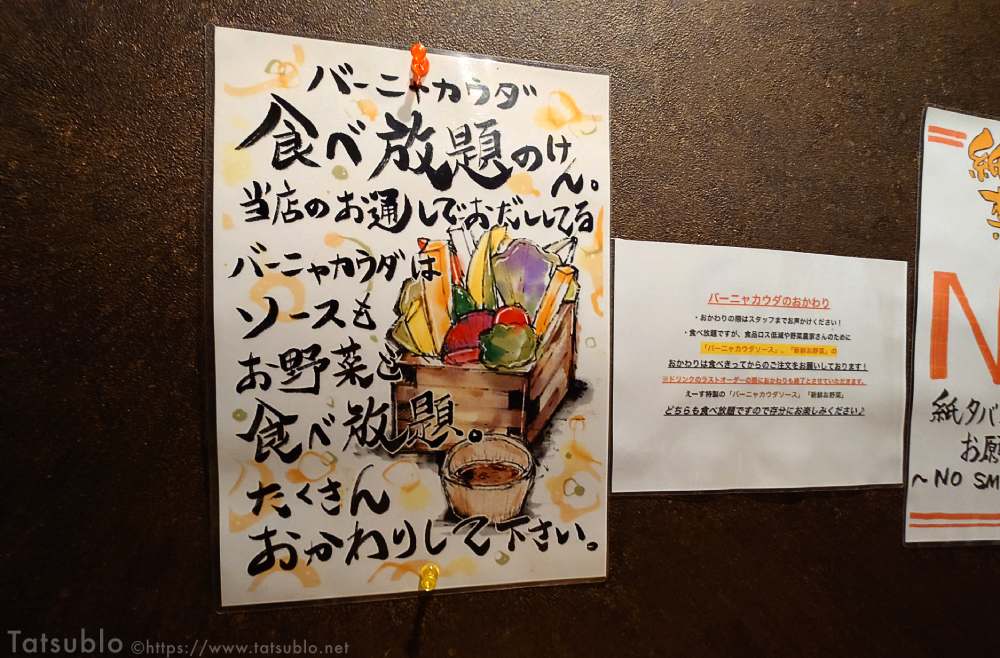 バーニャカウダ
食べ放題のけん。
当店のお通しでおだししてる
バーニャカウダは
ソースも
お野菜も
食べ放題。
たくさん
おかわりして下さい。
バーニャカウダのおかわり
・おかわりの際はスタッフまでお声かけください！
・食べ放題ですが、食品ロス低減や野菜農家さんのために
「バーニャカウダソース」、「新鮮お野菜」の
おかわりは食べきってからのご注文をお願いしております！
※ドリンクのラストオーダーの際におかわりも終了とさせていただきます。
えーす特製の「バーニャカウダソース」「新鮮お野菜」
どちらも食べ放題ですので存分にお楽しみください♪
紙
N
紙タバ
お願
～NO SM
Tatsublo ©https://www.tatsublo.net